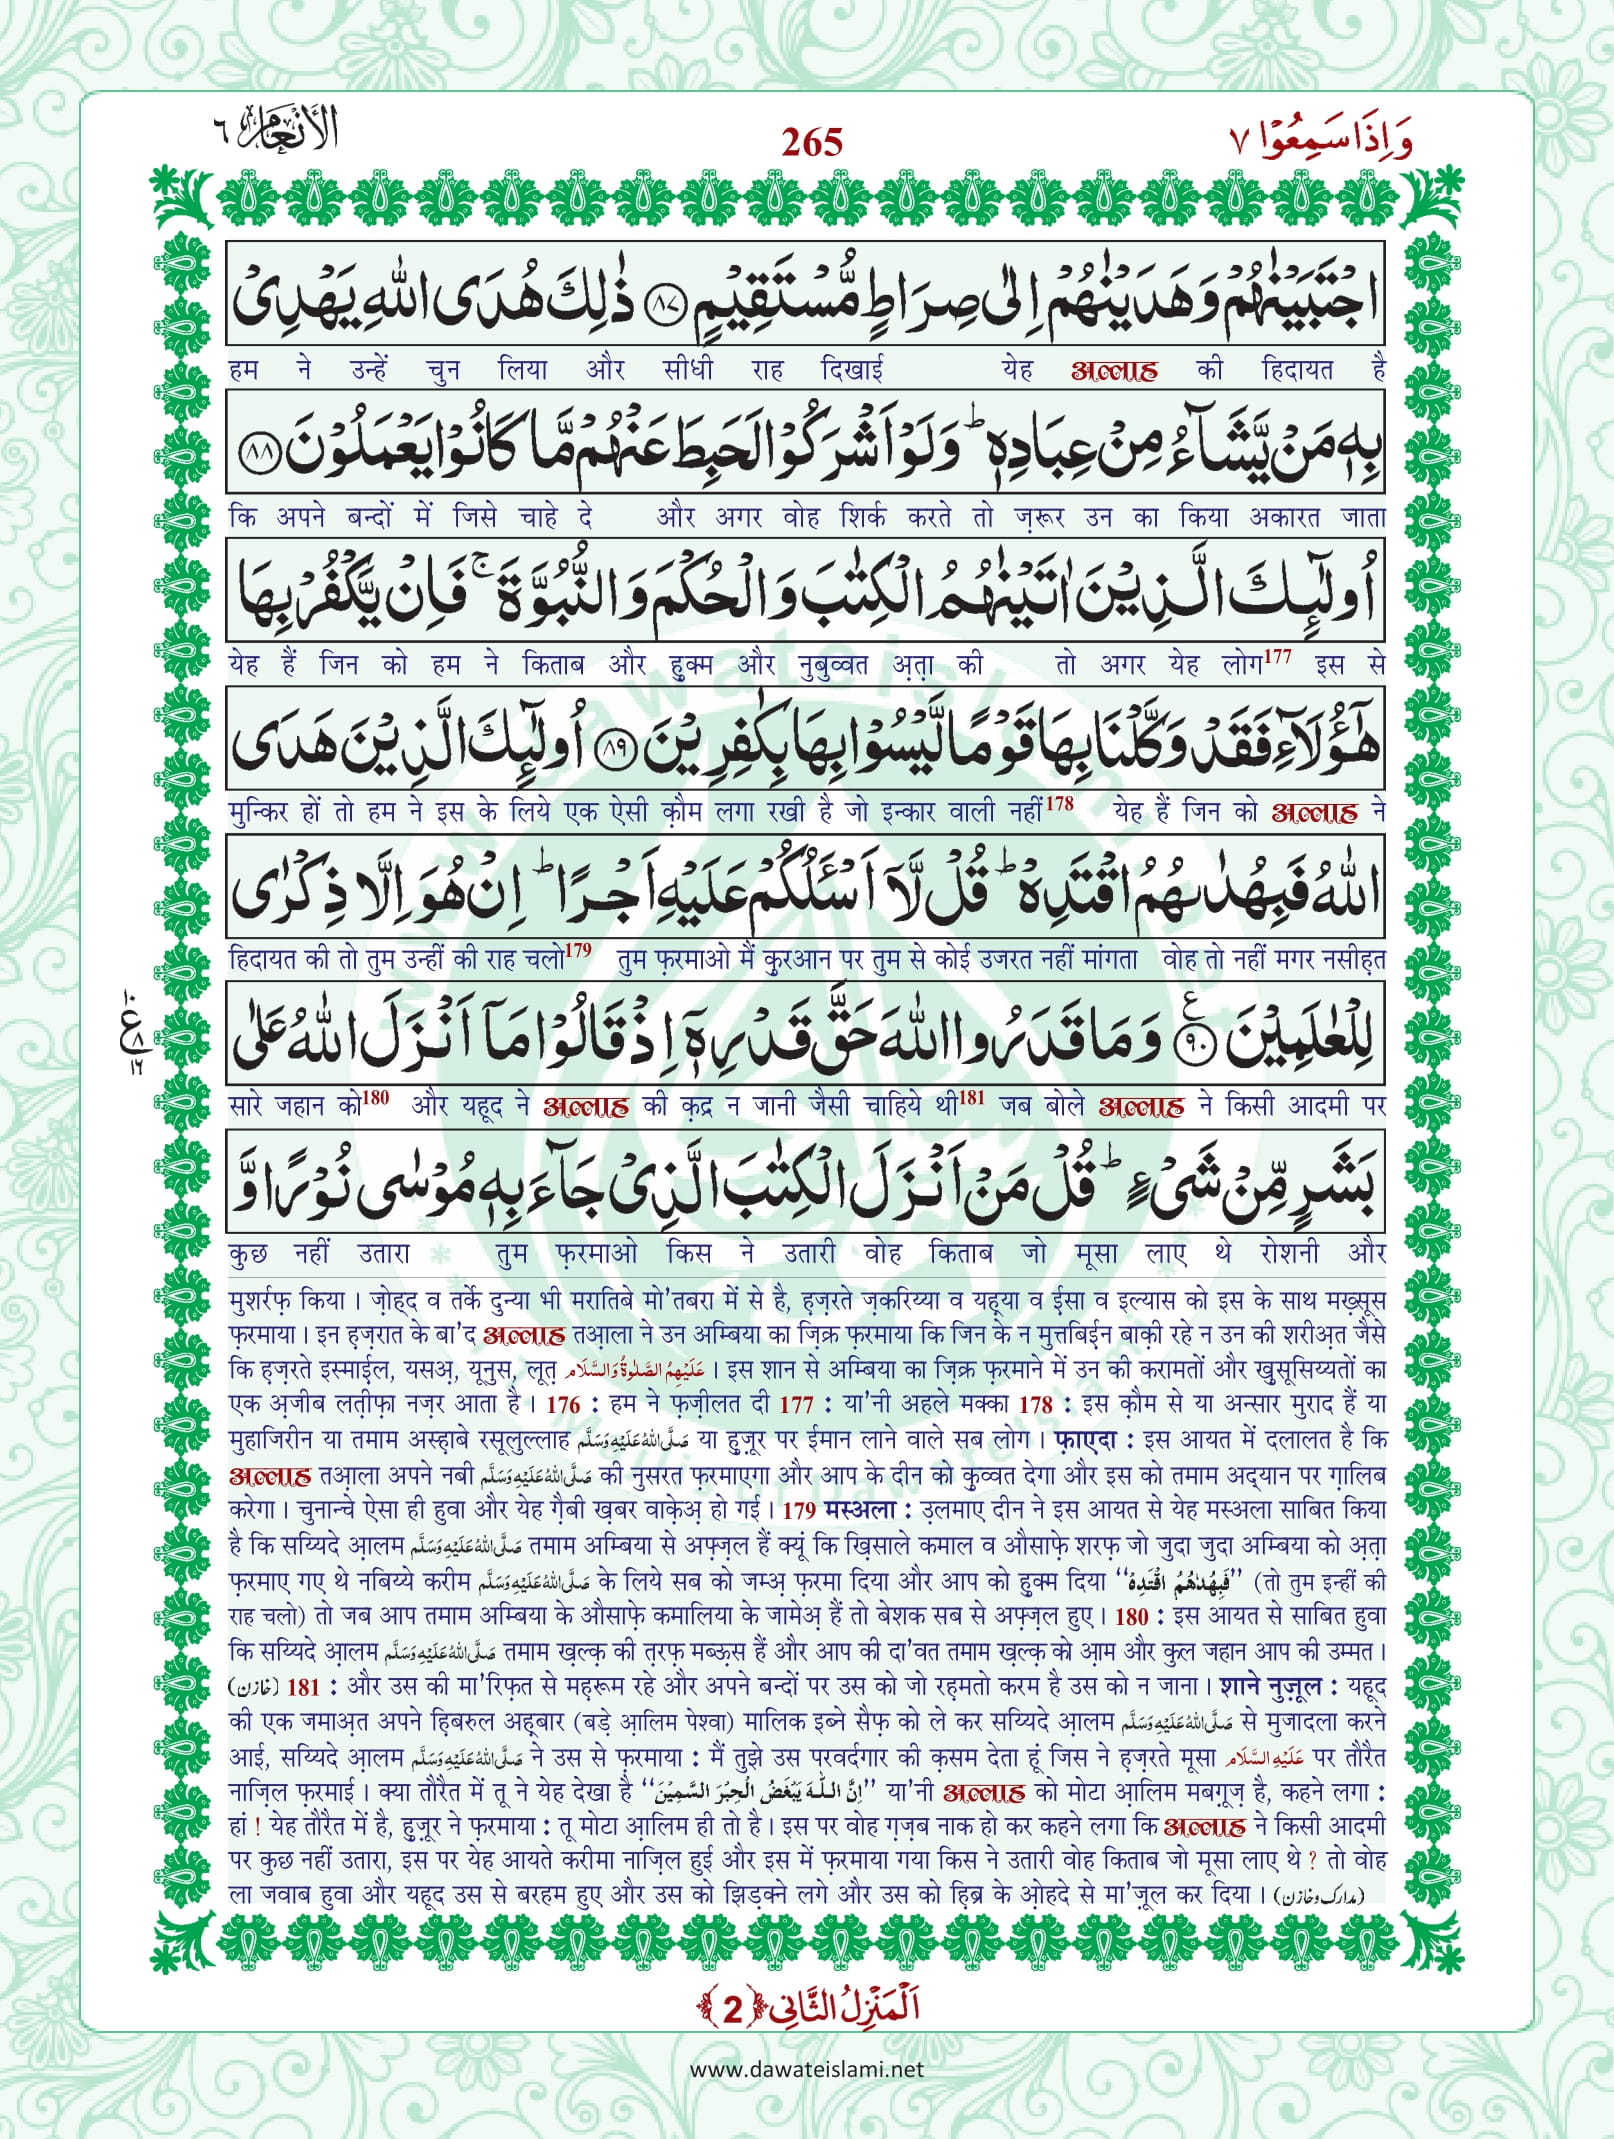 وَاِذَا سَمِعُوۡا ۷
265
الۡاَنۡعَام ٦
اجۡتَبَيۡنٰهُمۡ وَهَدَيۡنٰهُمۡ اِلٰى صِرَاطٍ مُّسۡتَقِيۡمٍ ﴿۸۷﴾ ذٰلِكَ هُدَى اللّٰهِ يَهۡدِىۡ
हम ने उन्हें चुन लिया और सीधी राह दिखाई येह अल्लाह की हिदायत है
بِهٖ مَنۡ يَّشَآءُ مِنۡ عِبَادِهٖ ؕ وَلَوۡ اَشۡرَكُوۡا لَحَبِطَ عَنۡهُمۡ مَّا كَانُوۡا يَعۡمَلُوۡنَ ﴿۸۸﴾
कि अपने बन्दों में जिसे चाहे दे और अगर वोह शिर्क करते तो ज़रूर उन का किया अकारत जाता
اُولٰٓئِكَ الَّذِيۡنَ اٰتَيۡنٰهُمُ الۡكِتٰبَ وَالۡحُكۡمَ وَالنُّبُوَّةَ ۚ فَاِنۡ يَّكۡفُرۡ بِهَا
येह हैं जिन को हम ने किताब और हुक्म और नुबुव्वत अ़त़ा की तो अगर येह लोग177 इस से
هٰٓؤُلَآءِ فَقَدۡ وَكَّلۡنَا بِهَا قَوۡمًا لَّيۡسُوۡا بِهَا بِكٰفِرِيۡنَ ﴿۸۹﴾ اُولٰٓئِكَ الَّذِيۡنَ هَدَى
मुन्किर हों तो हम ने इस के लिये एक ऐसी क़ौम लगा रखी है जो इन्कार वाली नहीं178 येह हैं जिन को अल्लाह ने
اللّٰهُ فَبِهُدٰٮهُمُ اقۡتَدِهۡ ؕ قُلۡ لَّاۤ اَسۡـَٔلُكُمۡ عَلَيۡهِ اَجۡرًا ؕ اِنۡ هُوَ اِلَّا ذِكۡرٰى
हिदायत की तो तुम उन्हीं की राह चलो179 तुम फ़रमाओ मैं कुरआन पर तुम से कोई उजरत नहीं मांगता वोह तो नहीं मगर नसीह़त
لِلۡعٰلَمِيۡنَ ﴿۹۰﴾ ع وَمَا قَدَرُوا اللّٰهَ حَقَّ قَدۡرِهٖۤ اِذۡ قَالُوۡا مَاۤ اَنۡزَلَ اللّٰهُ عَلٰى
۱۰ ع ۸ ۱٦
सारे जहान को180 और यहूद ने अल्लाह की क़द्र न जानी जैसी चाहिये थी181 जब बोले अल्लाह ने किसी आदमी पर
بَشَرٍ مِّنۡ شَىۡءٍ ؕ قُلۡ مَنۡ اَنۡزَلَ الۡكِتٰبَ الَّذِىۡ جَآءَ بِهٖ مُوۡسٰى نُوۡرًا وَّ
कुछ नहीं उतारा तुम फ़रमाओ किस ने उतारी वोह किताब जो मूसा लाए थे रोशनी और
मुशर्रफ़ किया । ज़ोह्द व तर्के दुन्या भी मरातिबे मो'तबरा में से है, ह़ज़रते ज़करिय्या व यह़्या व ई़सा व इल्यास को इस के साथ मख़्सूस
फ़रमाया । इन ह़ज़रात के बा'द अल्लाह तआ़ला ने उन अम्बिया का ज़िक्र फ़रमाया कि जिन के न मुत्तबिई़न बाक़ी रहे न उन की शरीअ़त जैसे
कि ह़ज़रते इस्माई़ल, यसअ़, यूनुस, लूत़ عَلَيْهِمُ الصَّلٰوةُ وَالسَّلَام । इस शान से अम्बिया का ज़िक्र फ़रमाने में उन की करामतों और खुसूसिय्यतों का
एक अ़जीब लत़ीफ़ा नज़र आता है । 176 : हम ने फ़ज़ीलत दी 177 : या'नी अहले मक्का 178 : इस क़ौम से या अन्सार मुराद हैं या
मुहाजिरीन या तमाम अस्ह़ाबे रसूलुल्लाह صَلَّى اللهُ عَلَيْهِ وَسَلَّم या हुज़ूर पर ईमान लाने वाले सब लोग । फ़ाएदा : इस आयत में दलालत है कि
अल्लाह तआ़ला अपने नबी صَلَّى اللهُ عَلَيْهِ وَسَلَّم की नुसरत फ़रमाएगा और आप के दीन को कुव्वत देगा और इस को तमाम अद्यान पर ग़ालिब
करेगा । चुनान्चे ऐसा ही हुवा और येह ग़ैबी ख़बर वाक़ेअ़ हो गई । 179 मस्अला : उ़लमाए दीन ने इस आयत से येह मस्अला साबित किया
है कि सय्यिदे आ़लम صَلَّى اللهُ عَلَيْهِ وَسَلَّم तमाम अम्बिया से अफ़्ज़ल हैं क्यूं कि ख़िसाले कमाल व औसाफ़े शरफ़ जो जुदा जुदा अम्बिया को अ़त़ा
फ़रमाए गए थे नबिय्ये करीम صَلَّى اللهُ عَلَيْهِ وَسَلَّم के लिये सब को जम्अ़ फ़रमा दिया और आप को हुक्म दिया "فَبِهُدٰهُمُ اقْتَدِهْ" (तो तुम इन्हीं की
राह चलो) तो जब आप तमाम अम्बिया के औसाफ़े कमालिया के जामेअ़ हैं तो बेशक सब से अफ़्ज़ल हुए । 180 : इस आयत से साबित हुवा
कि सय्यिदे आ़लम صَلَّى اللهُ عَلَيْهِ وَسَلَّم तमाम ख़ल्क़ की त़रफ़ मब्ऊ़स हैं और आप की दा'वत तमाम ख़ल्क़ को आ़म और कुल जहान आप की उम्मत ।
(خازن) 181 : और उस की मा'रिफ़त से मह़रूम रहे और अपने बन्दों पर उस को जो रह़मतो करम है उस को न जाना । शाने नुज़ूल : यहूद
की एक जमाअ़त अपने ह़िबरुल अह़्बार (बड़े आ़लिम पेश्वा) मालिक इब्ने सैफ़ को ले कर सय्यिदे आ़लम صَلَّى اللهُ عَلَيْهِ وَسَلَّم से मुजादला करने
आई, सय्यिदे आ़लम صَلَّى اللهُ عَلَيْهِ وَسَلَّم ने उस से फ़रमाया : मैं तुझे उस परवर्दगार की क़सम देता हूं जिस ने ह़ज़रते मूसा عَلَيْهِ السَّلَام पर तौरैत
नाज़िल फ़रमाई । क्या तौरैत में तू ने येह देखा है "اِنَّ اللّٰهَ يَبْغَضُ الْحِبْرَ السَّمِيْنَ" या'नी अल्लाह को मोटा आ़लिम मबग़ूज़ है, कहने लगा :
हां ! येह तौरैत में है, हुज़ूर ने फ़रमाया : तू मोटा आ़लिम ही तो है । इस पर वोह ग़ज़ब नाक हो कर कहने लगा कि अल्लाह ने किसी आदमी
पर कुछ नहीं उतारा, इस पर येह आयते करीमा नाज़िल हुई और इस में फ़रमाया गया किस ने उतारी वोह किताब जो मूसा लाए थे ? तो वोह
ला जवाब हुवा और यहूद उस से बरहम हुए और उस को झिड़क्ने लगे और उस को ह़िब्र के ओ़हदे से मा'ज़ूल कर दिया । (مدارک و خازن)
اَلۡمَنۡزِلُ الثَّانِى ﴿2﴾
www.dawateislami.net